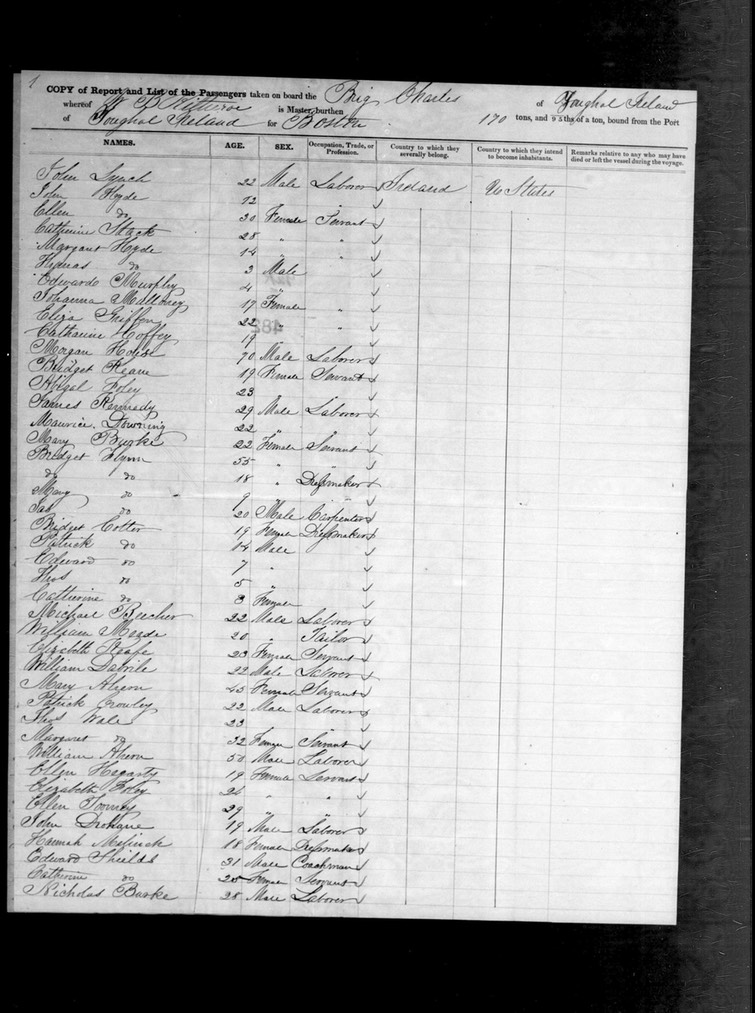 1
COPY of Report and List of the Passengers taken on board the Brig Charles of Youghal Ireland
whereof W B is Master, burthen 170 tons, and 95ths of a ton, bound from the Port
of Youghal Ireland for Boston
NAMES. AGE. SEX. Occupation, Trade, or Profession. Country to which they severally belong. Country to which they intend to become inhabitants. Remarks relative to any who may have died or left the vessel during the voyage.
John Lynch 22 Male Laborer Ireland U States
John Hyde "
Ellen do 30 Female Servant
Catherine Stack 28 " "
Margaret Hyde 14 " "
Thomas do 3 Male
Edward Murphy 4 "
Johanna Mulloney 17 Female "
Eliza Griffen 22 " "
Catharine Coffey 19 "
Morgan House 70 Male Laborer
Bridget Keane 19 Female Servant
Abigal Foley 23 " "
James Kennedy 29 Male Laborer
Maurice Downing 22 " "
Mary Burke 22 Female Servant
Bridget Flynn 55 " "
do do 18 " Dressmaker
Mary do 9 "
Jas do 20 Male Carpenter
Bridget Cotter 19 Female Dressmaker
Patrick do Male
Edward do 7 "
Thos do 5 "
Catherine do 3 Female
Michael Beecher 22 Male Laborer
William Meade 20 " Tailor
Elizabeth Keafe 23 Female Servant
William 22 Male Laborer
Mary Ahern 45 Female Servant
Patrick Crowley 22 Male Laborer
Thos Wale 23
Margaret do 32 Female Servant
William Ahern 50 Male Laborer
Ellen Hegarty 19 Female Servant
Elizabeth Foley 24 " "
Ellen Toomey 29 " "
John 19 Male Laborer
Hannah 18 Female Dressmaker
Edward Shields 31 Male Coachman
Catherine do 25 Female Servant
Nicholas Burke 28 Male Laborer